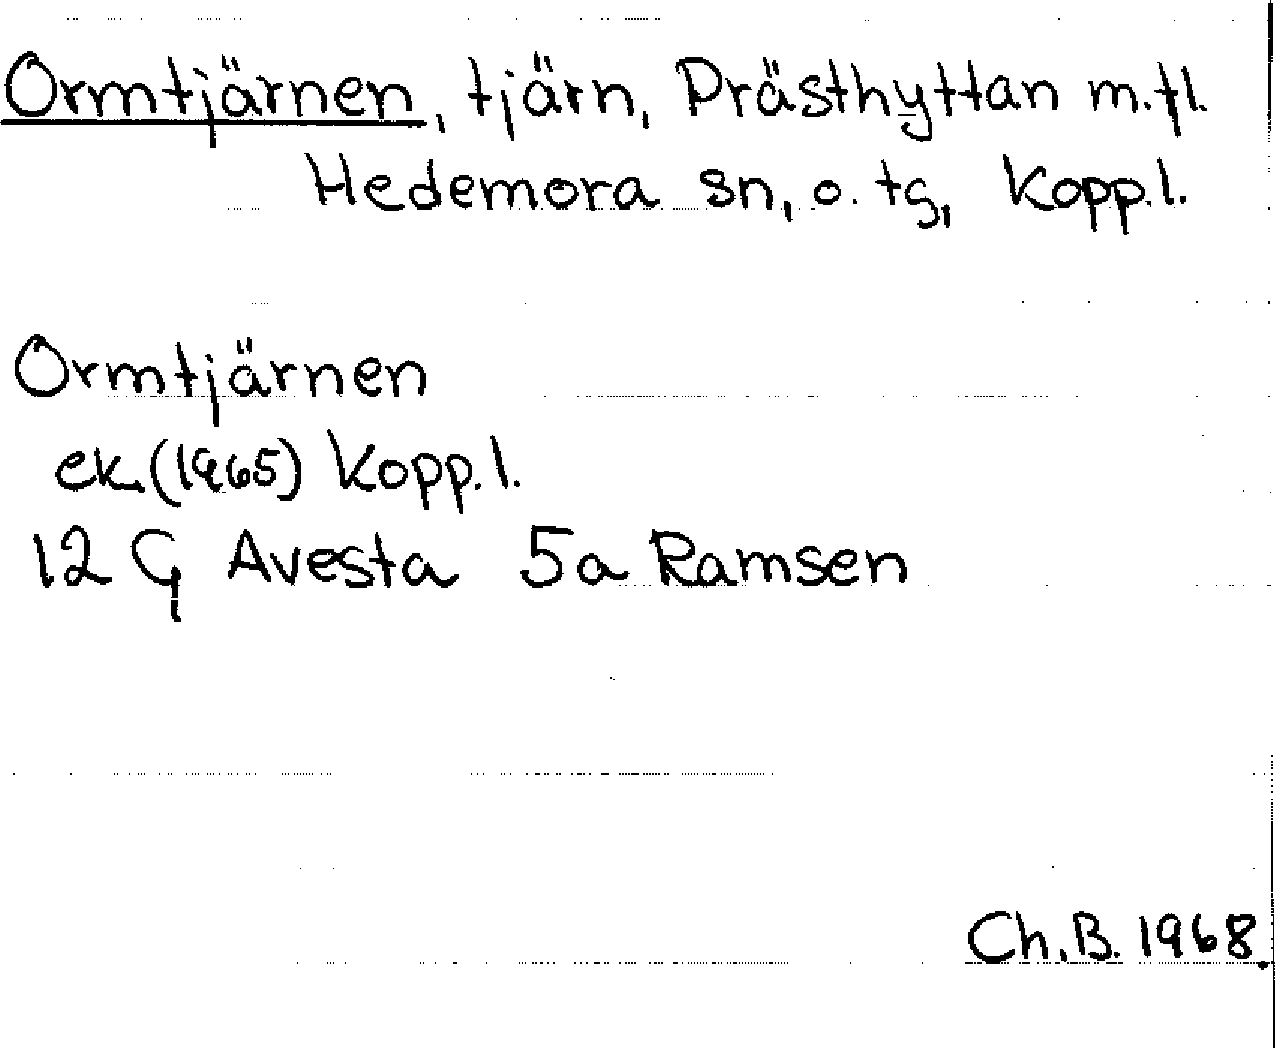 Ormtjärnen, tjärn, Prästhyttan m.fl.
Hedemora sn, o. tg, Kopp.l.
Ormtjärnen
ek. (1965) Kopp.l.
12 G Avesta 5a Ramsen
Ch.B. 1968.